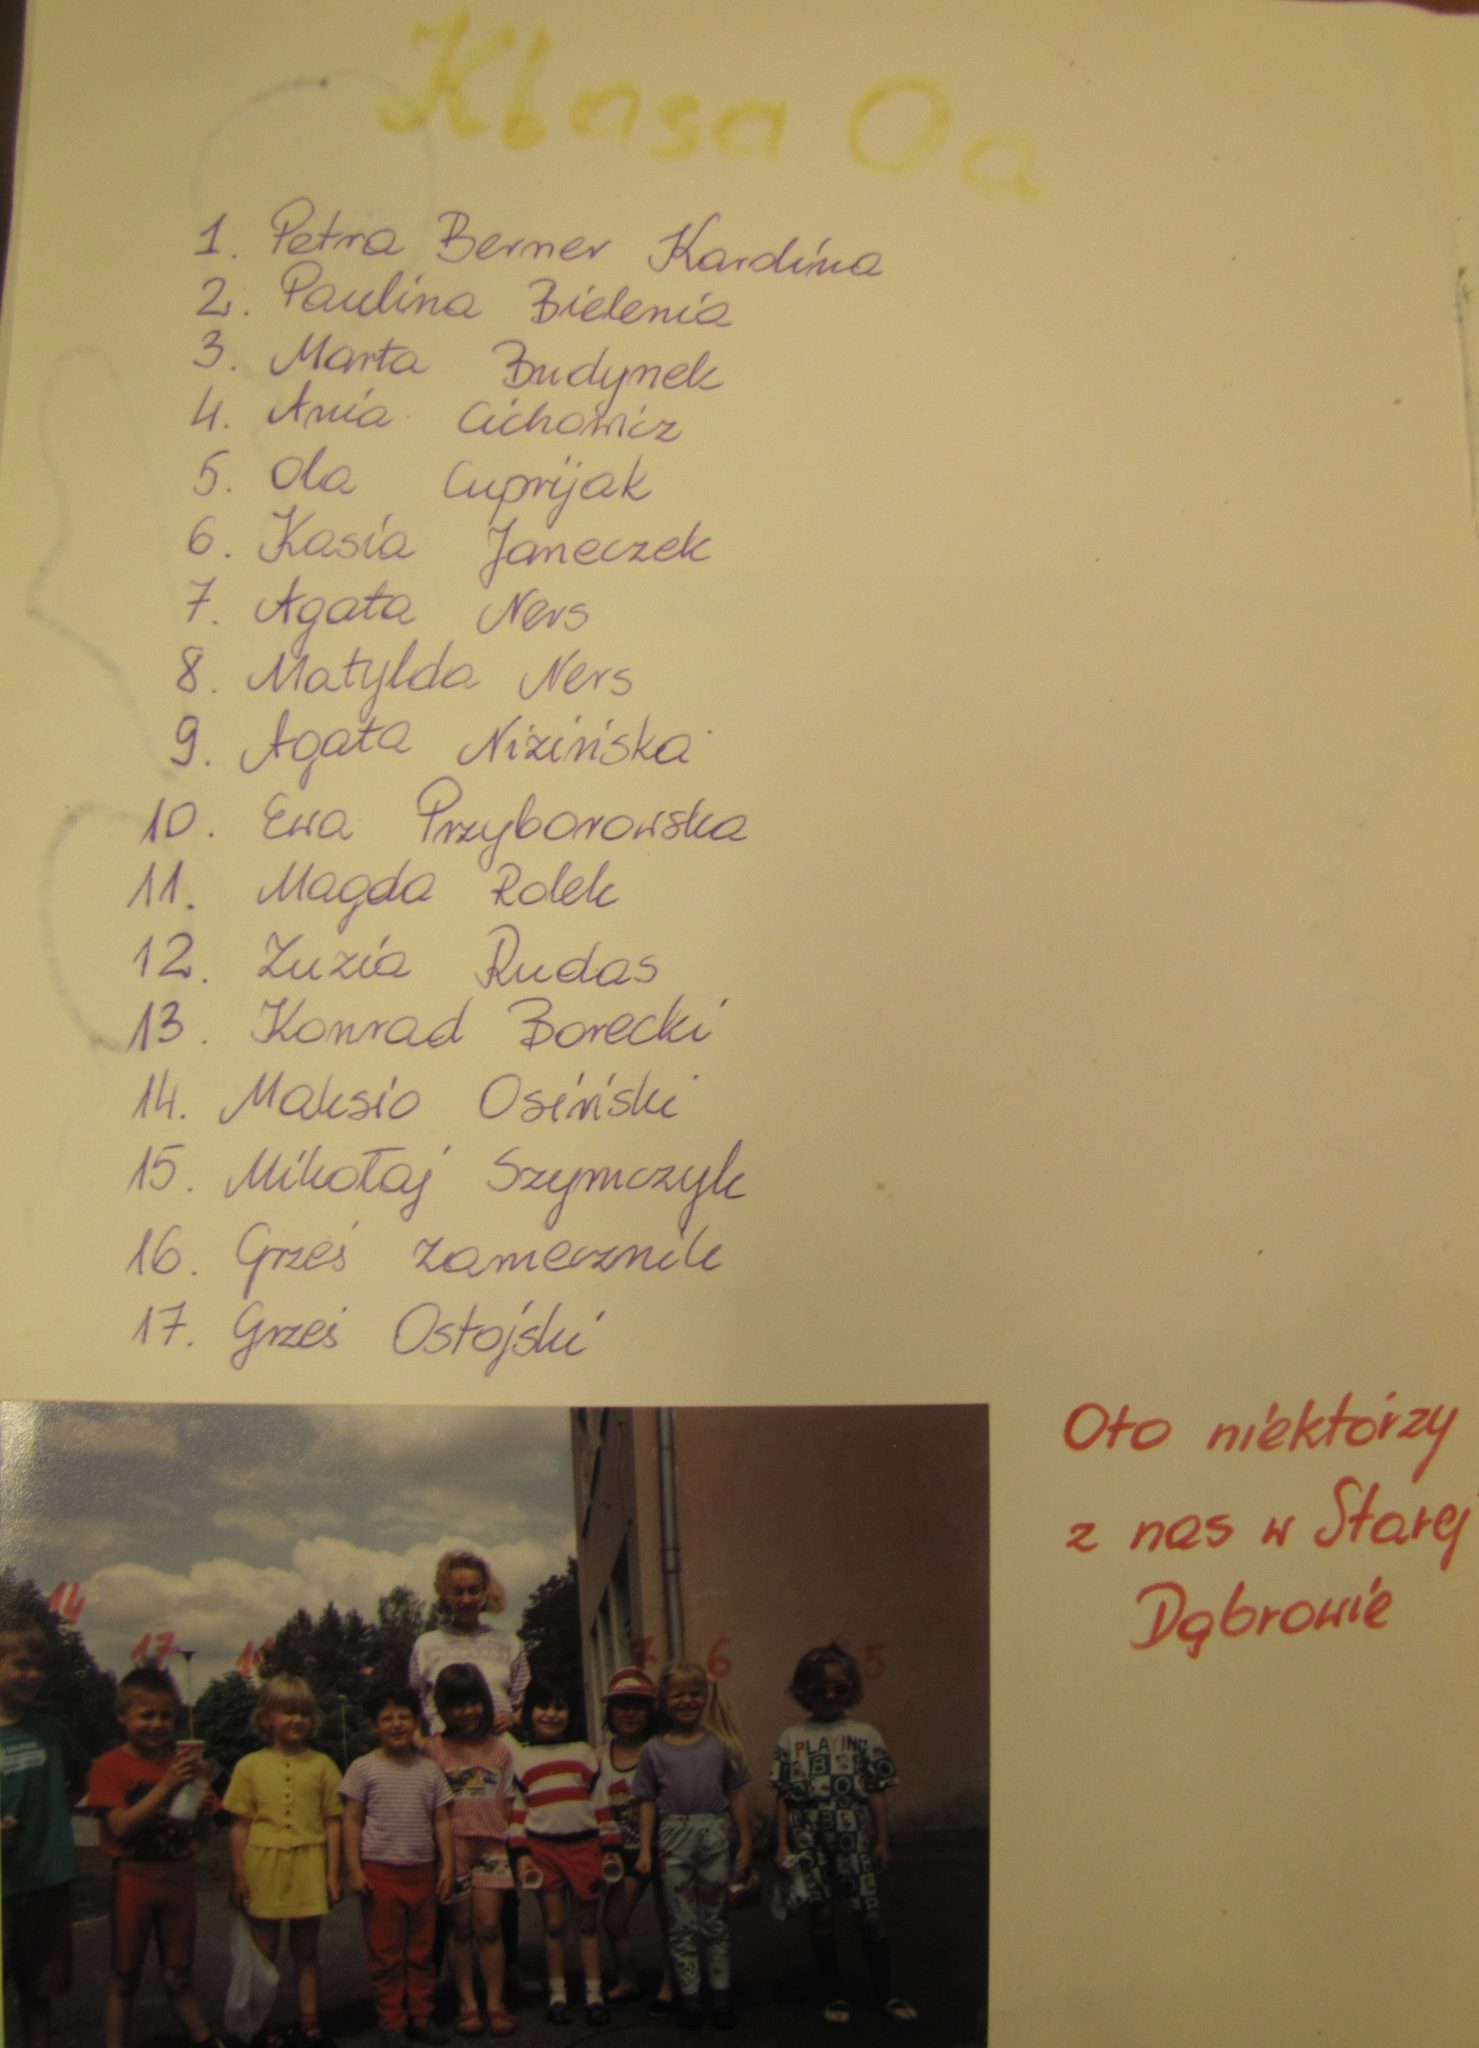 Klasa Oa
1. Petra Berner Kardina
2. Paulina Bielenia
3. Marta Budynek
4. Ania Cichowicz
5. Ola Cuprijak
6. Kasia Janeczek
7. Agata Ners
8. Matylda Ners
9. Agata Nizińska
10. Ewa Przyborowska
11. Magda Rolek
12. Zuzia Rudas
13. Konrad Borecki
14. Maksio Osiński
15. Mikołaj Szymczyk
16. Grześ Zamecznik
17. Grześ Ostojski
Oto niektórzy
z nas w Starej
Dąbrowie
14
17
6
5
PLAYING